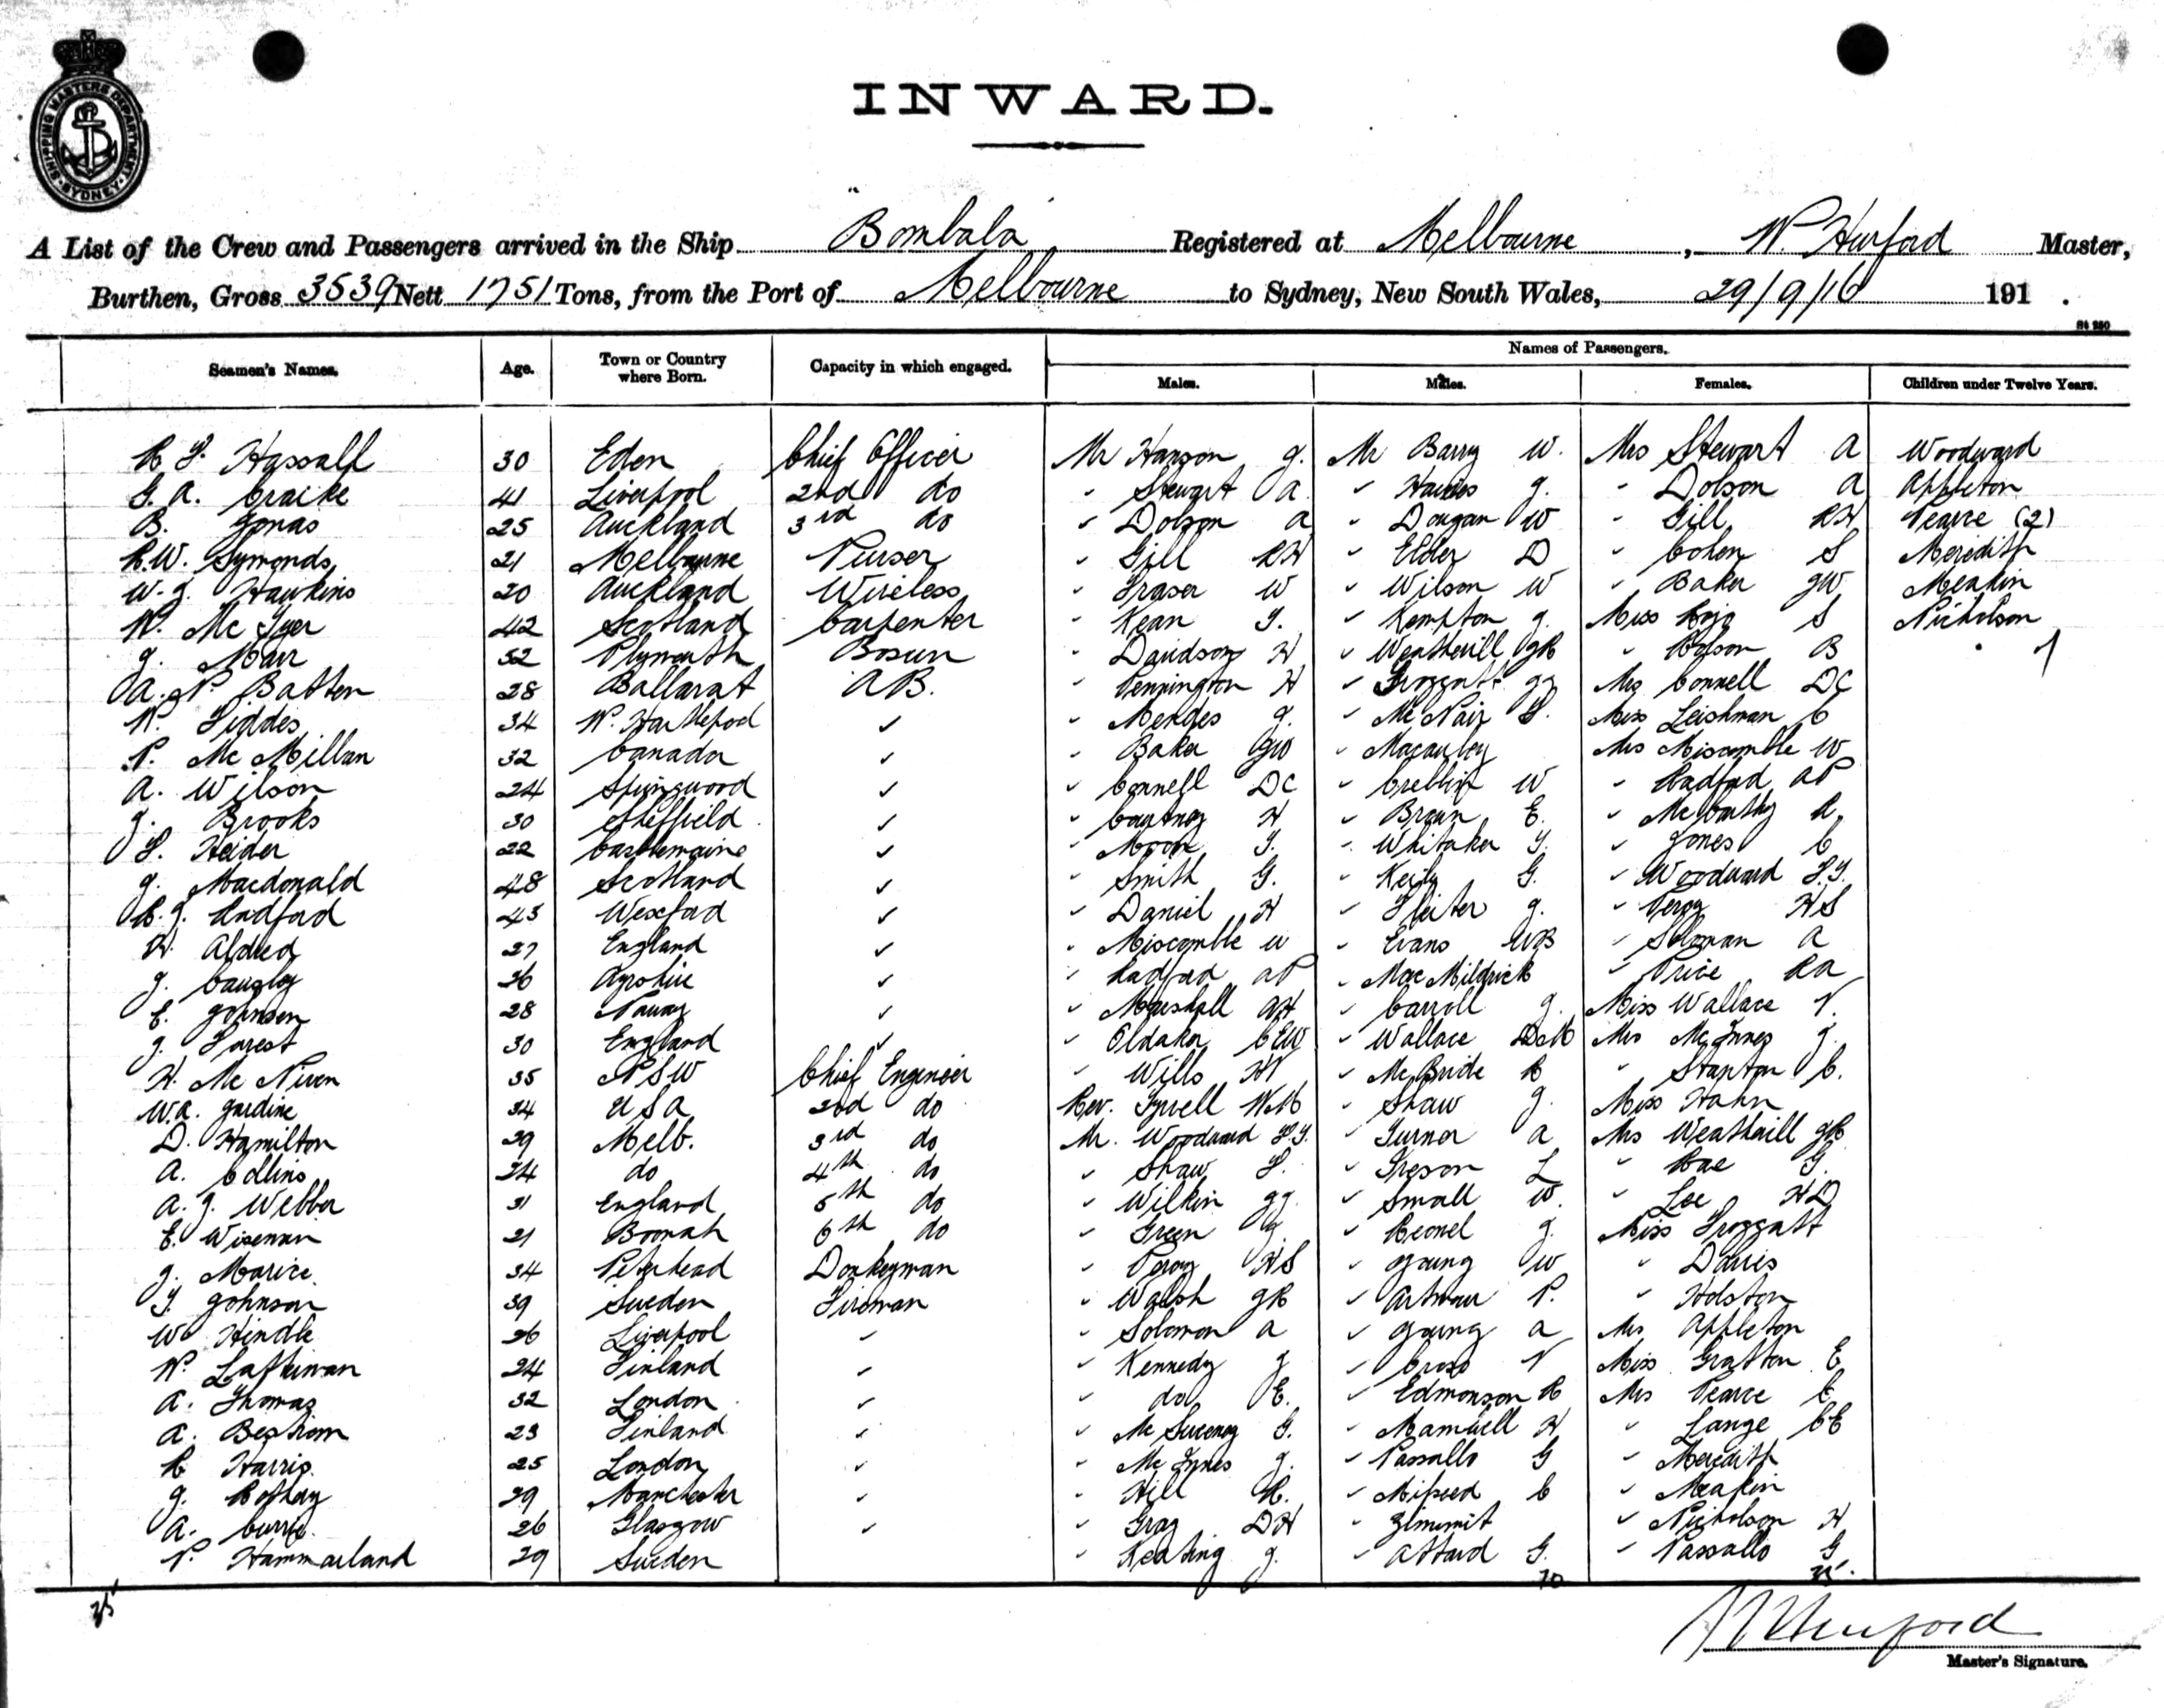 SHIPPING MASTERS DEPARTMENT SYDNEY
INWARD.
A List of the Crew and Passengers arrived in the Ship "Bombala" Registered at Melbourne, W. Hurford Master,
Burthen, Gross 3539 Nett 1751 Tons, from the Port of Melbourne to Sydney, New South Wales, 29/9/16 191 .
St 250
Names of Passengers.
Seamen's Names. Age. Town or Country where Born. Capacity in which engaged. Males. Males. Females. Children under Twelve Years.
Hassall 30 Eden Chief Officer Mr Hanson J. Mr Barry W. Mrs Stewart A Woodward
G. A. Craike 41 Liverpool 2nd do " Stewart A " Harries J. " Dobson A Appleton
B. Jonas 25 Auckland 3rd do " Dobson A " Dougan W " Gill RH Pearce (2)
R.W. Symonds 21 Melbourne Purser " Gill RH " Elder D " Cohen S Meredith
W. J. Hawkins 20 Auckland Wireless " Fraser W " Wilson W " Baker GW Meakin
42 Scotland Carpenter " Kean " Kempton J. Miss S Nicholson
J. Mair 52 Plymouth Bosun " Davidson H " Weatherill JR " B
A. P. Batten 28 Ballarat AB. " Pennington H " Froggatt Mrs Connell DC
W. Fiddes 34 W. Hartlepool " " Mendes J. " McNair Miss Leishman C
P. McMillan 32 Canada " " Baker GW " Macauley Mrs Miscamble W
A. Wilson 24 Springwood " " Connell DC " W " Radford AP
J. Brooks 30 Sheffield " " Courtney H " Braun E. " McCarthy R.
Heider 22 Castlemaine " " Moore " Whitaker " Jones C
J. Macdonald 48 Scotland " " Smith G. " G. " Woodward
R. J. Radford 43 Wexford " " Daniel H " J. " Percy HS
H. Aldred 27 England " " Miscamble W " Evans WB " Soloman A
J. 26 Ayrshire " " Radford AP " " Price RA
E. Johnson 28 Norway " " Marshall AH " Carroll J. Miss Wallace V.
J. Forest 30 England " " Oldaker CEW " Wallace Mrs McInnes J.
H. McNiven 35 NSW Chief Engineer " Wills H " McBride R " Stanton C.
W.A. Jardine 34 USA 2nd do Rev. WM " Shaw J. Miss Hahn
D. Hamilton 29 Melb. 3rd do Mr. Woodward " Turner A Mrs Weatherill JR
A. Collins 24 do 4th do " Shaw " L " Rae G.
A. J. Webber 31 England 5th do " Wilkin " Small W. " Lee HD
E. Wiseman 21 Boonah 6th do " Green " J. Miss Froggatt
J. 34 Peterhead Donkeyman " Percy HS " Young W " Davis
Johnson 39 Sweden Fireman " Walsh JR " P. " Holston
W Hindle 26 Liverpool " " Solomon A " Young A Mrs Appleton
24 Finland " " Kennedy J " Cross V Miss Gratton E
A. Thomas 32 London " " do E. " Edmonson R Mrs Pearce E
A. 23 Finland " " McSweeney " H " Lange CE
R Harris 25 London " " McInnes J. " Vassallo G " Meredith
J. 29 Manchester " " Hill R. " Mifsud C " Meakin
A. Currie 26 Glasgow " " Gray DH " " Nicholson H
Hammarland 29 Sweden " Keating J. " Attard G. " Vassallo G
35 70 35
Master's Signature.